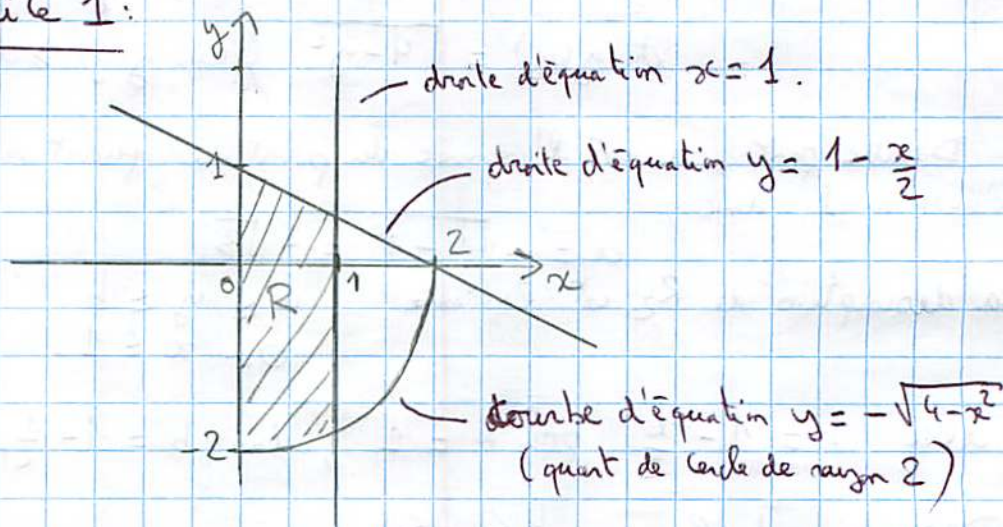 1:
y
droite d'équation x = 1.
1
droite d'équation y = 1 - x/2
2
0
1
x
R
-2
courbe d'équation y = -√(4-x²)
(quart de cercle de rayon 2)